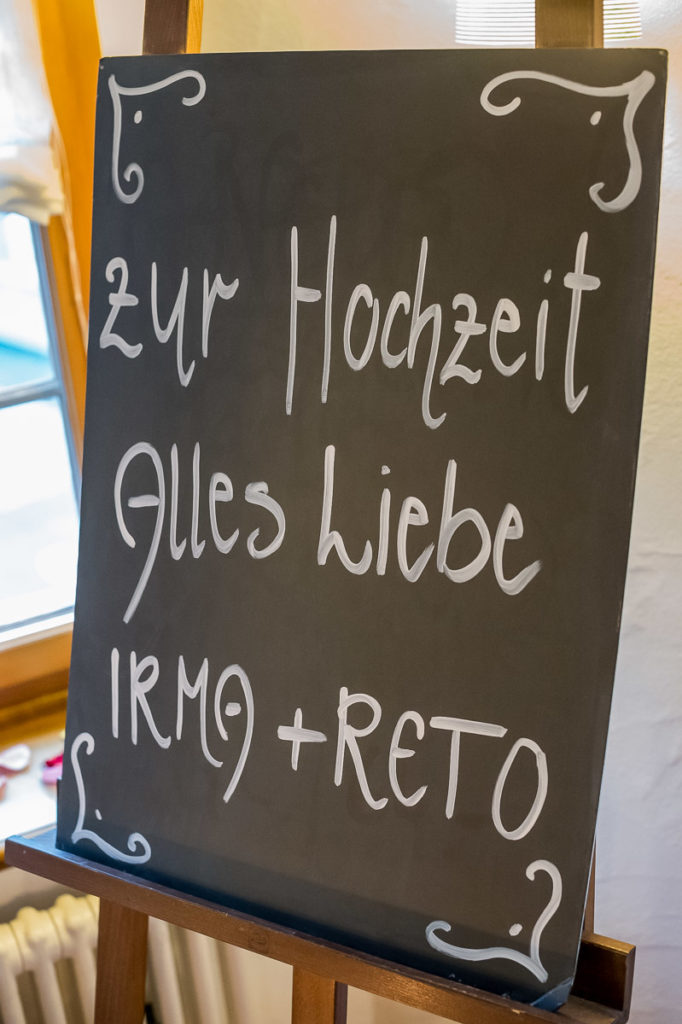 zur Hochzeit
Alles Liebe
IRMA + RETO